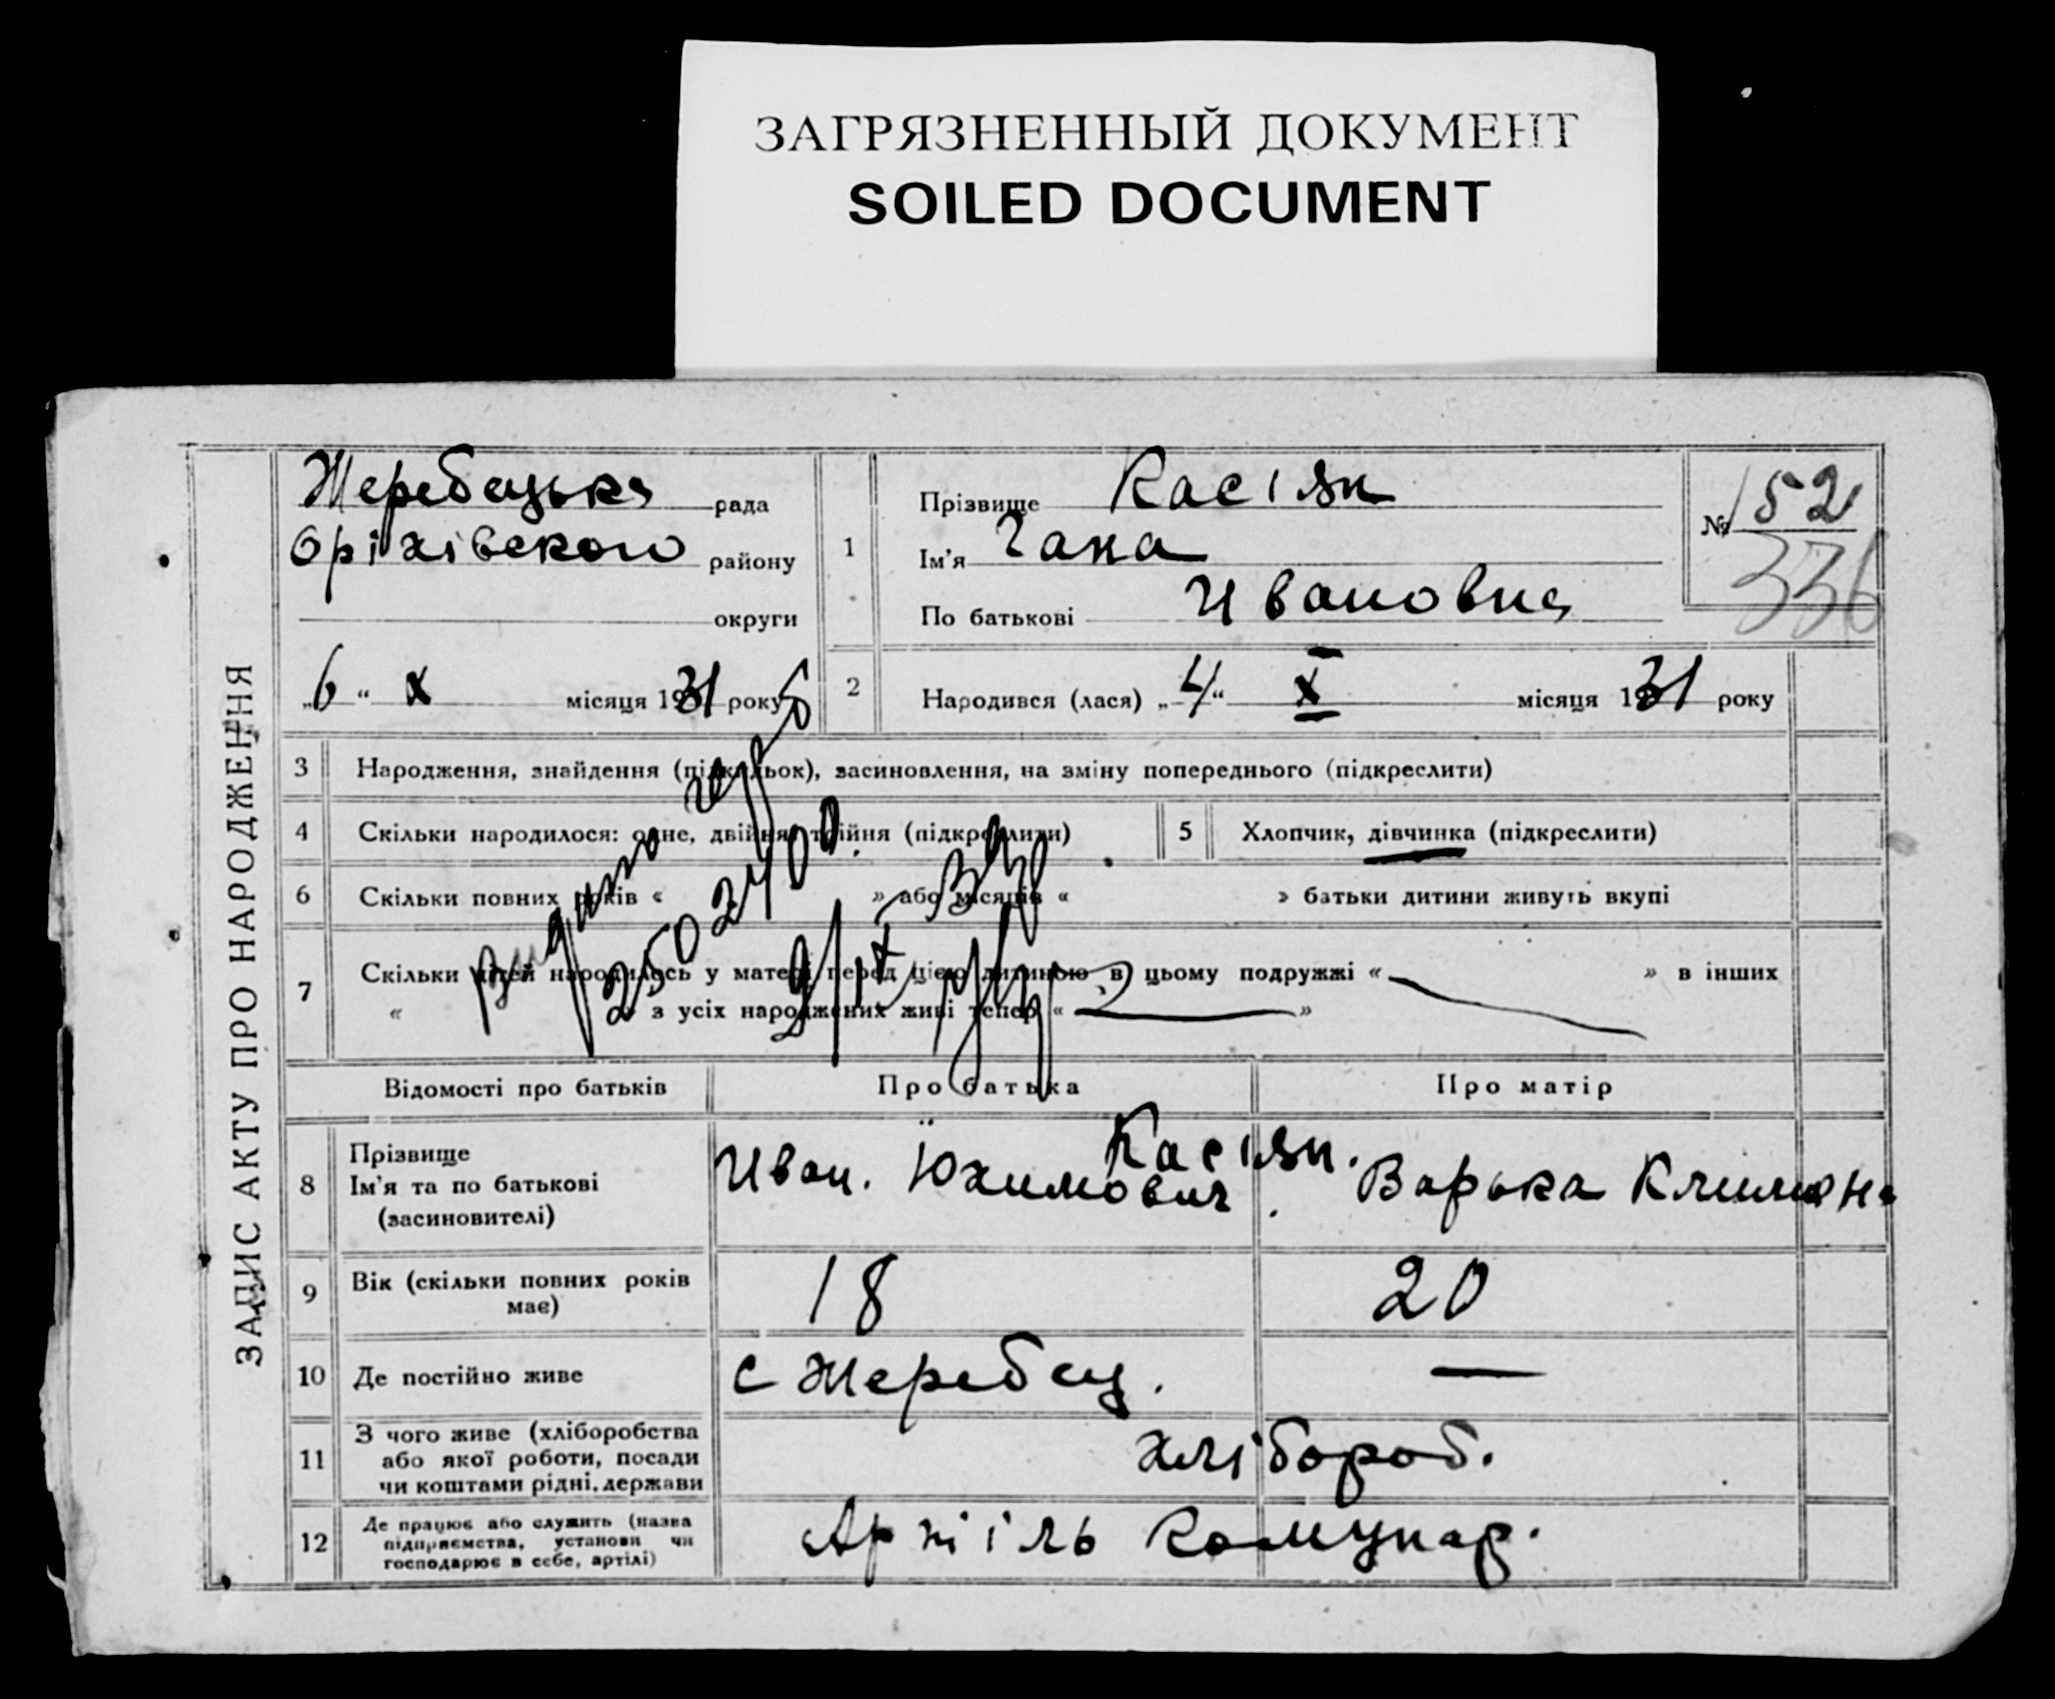 ЗАГРЯЗНЕННЫЙ ДОКУМЕНТ
SOILED DOCUMENT
ЗАПИС АКТУ ПРО НАРОДЖЕННЯ
Жеребецька рада
Оріхівского району
округи
„6“ X місяця 1931 року
1 Прізвище Касіян
Ім'я Гана
По батькові Ивановна
№ 152
336
2 Народився (лася) „4“ X місяця 1931 року
3 Народження, знайдення (підкидьок), засиновлення, на зміну попереднього (підкреслити)
4 Скільки народилося: одне, двійня, трійня (підкреслити)
5 Хлопчик, дівчинка (підкреслити)
6 Скільки повних років « » або місяців « » батьки дитини живуть вкупі
7 Скільки дітей народилось у матері перед цією дитиною в цьому подружжі « — » в інших
« » з усіх народжених живі тепер « — »
Відомості про батьків Про батька Про матір
8 Прізвище
Ім'я та по батькові
(засиновителі)
Касіян.
Иван. Юхимович. Варька Климон.
9 Вік (скільки повних років
має)
18 20
10 Де постійно живе с Жеребец. —
11 З чого живе (хліборобства
або якої роботи, посади
чи коштами рідні, держави
хлібороб.
12 Де працює або служить (назва
підприємства, установи чи
господарює в себе, артілі)
Артіль Комунар.